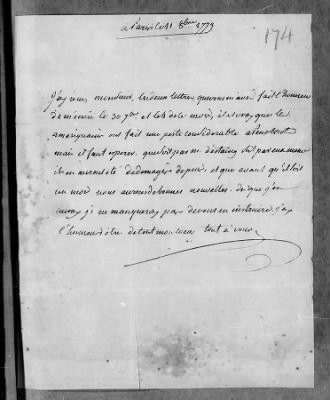 a Paris le 31 8bre 1779
174
j'ay reçu monsieur les deux lettres que vous m'avez fait l'honneur
de m'ecrire le 30 7bre et le 6 de ce mois, il est vray que les
ameriquains ont fait une perte considerable a Penobscot
mais il faut esperer que soit par mr d'estaing soit par eux meme
ils en auront été dédomagés depuis et que avant qu'il soit
un mois nous aurons de bonnes nouvelles. des que j'en
auray je ne manqueray pas de vous en instruire. j'ay
l'honneur d'etre de tout mon coeur tout à vous